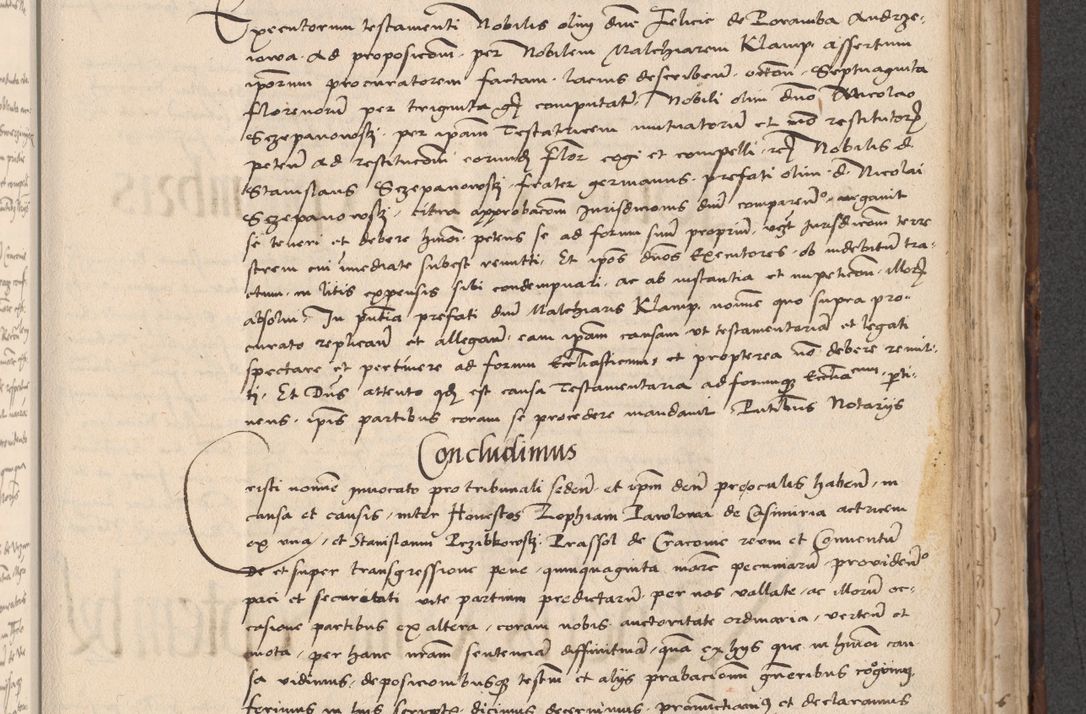 Executorum testamenti Nobilis olim dne Felicie de Poramba Andrze-
iowa. Ad proposicom per Nobilem Malchiarem Klamp. assertum
iporum procuratorem factam. lacius describen. Septuaginta
florenorum per triginta gr computatos. Nobili olim dno Nicolao
Sczepanowski. per ipam Testatricem mutuatorum et no restitutor
peten ad restitucom eorund flor cogi et compelli. Nobilis d
Stanislaus Sczepanowski. frater germanus. prefati olim d. Nicolai
Sczepanowski. citra approbacom Jurisdicionis dni comparendo negavit
se teneri et debere petens se ad forum suum proprium, Jurisdicom terre
strem cui imediate subest remitti. Et ipos dnos Executores. ob indebitum tra-
ctum. in litis expensis sibi condempnari. ac ab instantia et impeticon. illor
absolvi. In pntia prefati dni Malchiaris Klamp. nomine quo supra pro-
curato replican et allegan. eam ipam causam ut testamentaria et legati
spectare et pertinere ad forum Eccliasticum, et propterea no debere remit-
ti. Et Dns attento qd est causa Testamentaria ad forumq Eccliacum. perti-
nens. ipis partibus coram se procedere mandavit Pntibus Notarijs
Concludimus
Cristi nomine invocato pro tribunali seden. et ipm deum pre oculis haben. in
causa et causis. inter Honestos Zophiam de Casimiria actricem
ex una, et Stanislaum Przibkowski. Brassol de Cracovie reum et Conventum
De et super transgressione pene. quinquaginta marc pecuniarum. providendo
paci et securitati vite partium predictarum. per nos vallate. ac illorum oc-
casione partibus ex altera. coram nobis. auctoritate ordinaria. verten et
mota. per hanc nram sentencia diffinitiva. qua ex hys que in hmoi cau
sa vidimus. deposicionibusq testm et alijs probacionum generibus
ferimus in hijs scriptis. dicimus decernimus. pronunctiamus et declaramus